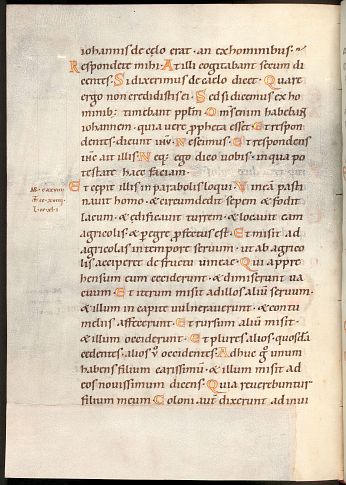 iohannis de celo erat · an ex hominibus ·
Respondete mihi · At illi cogitabant secum di
centes · Si dixerimus de caelo dicet · Quare
ergo non credidistis ei · Sed si dicemus ex ho
minib; timebant pplm · Omnes enim habebant
iohannem · quia vere ppheta esset · Et respon
dentes · dicunt ihu · Nescimus · Et respondens
ihc ait illis · Neq; ego dico vobis · in qua po
testate haec faciam ·
Et cepit illis in parabolis loqui · Vineam pasti
navit homo · & circumdedit sepem & fodit
lacum · & edificavit turrem · & locavit eam
agricolis · & pegre pfectus est · Et misit ad
agricolas in tempore servum · ut ab agrico
lis acciperet de fructu vineae · Qui appre
hensum eum ceciderunt · & dimiserunt va
cuum · Et iterum misit ad illos aliu servum ·
& illum in capite vulneraverunt · & contu
meliis affecerunt · Et rursum aliu misit ·
& illum occiderunt · Et plures alios · quosda
cedentes · alios v occidentes · Adhuc g unum
habens filium carissimu · & illum misit ad
eos novissimum dicens · Quia reverebuntur
filium meum · Coloni aut dixerunt ad invi